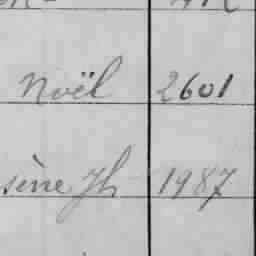 Noël 2601
sène Jh 1987